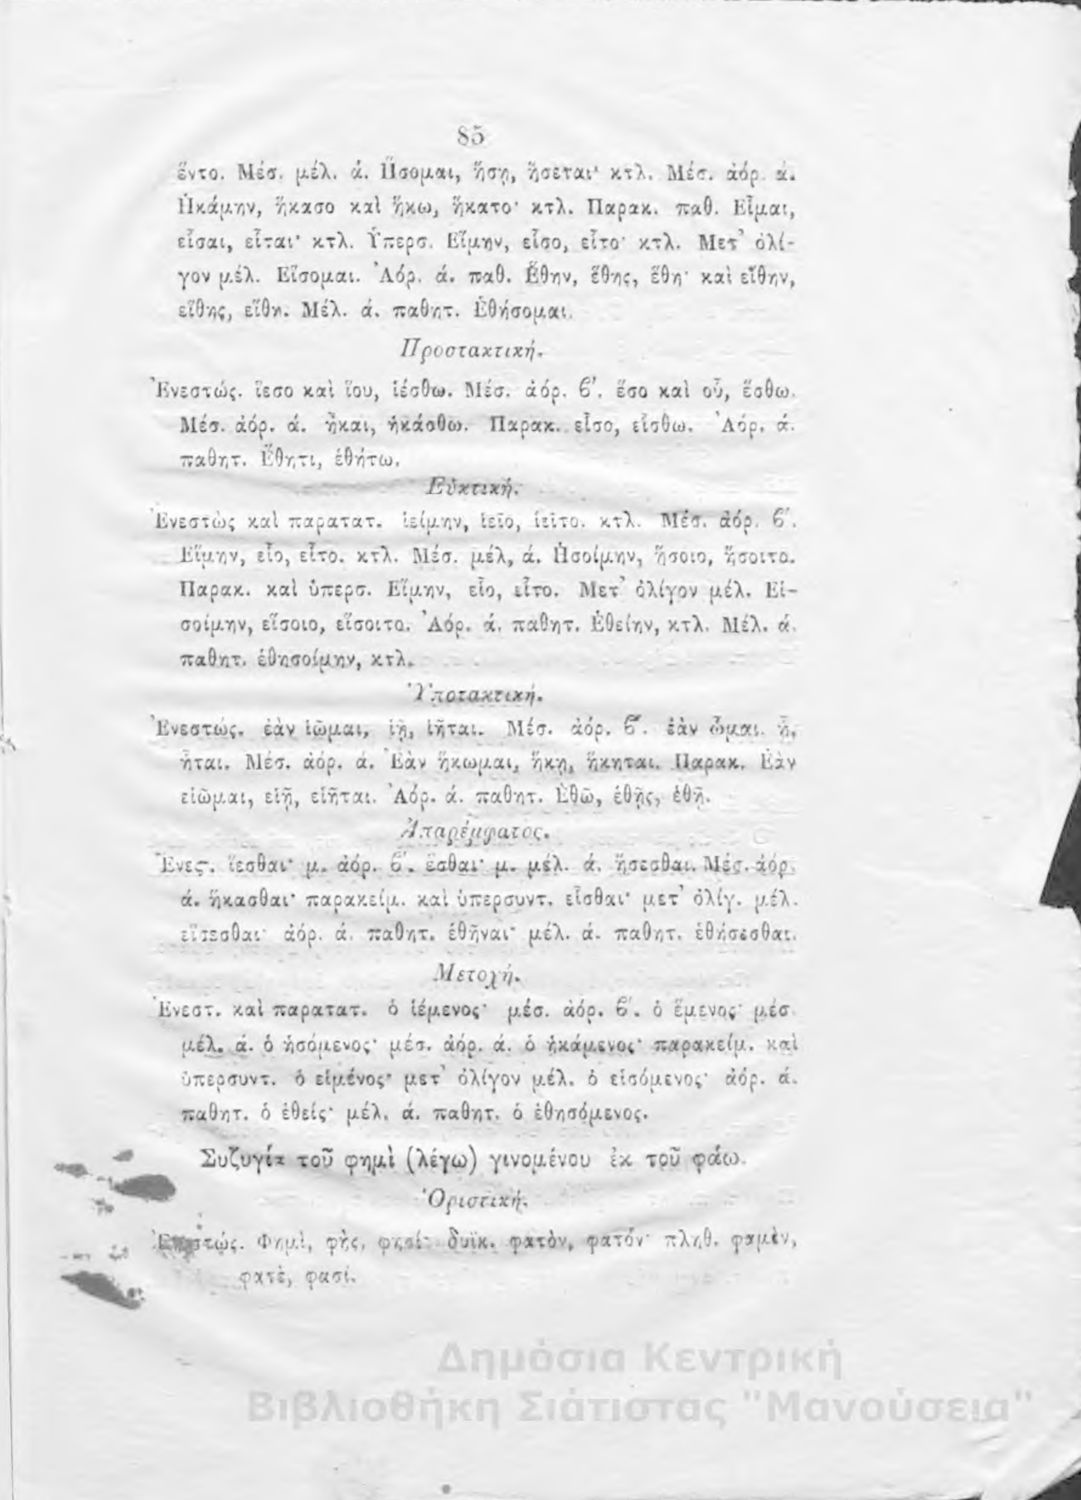 85
ἕντο. Μέσ. μέλ. ά. Ἥσομαι, ἥσῃ, ἥσεται· κτλ. Μέσ. ἀόρ. ά.
Ἡκάμην, ἥκασο καὶ ἥκω, ἥκατο· κτλ. Παρακ. παθ. Εἷμαι,
εἷσαι, εἷται· κτλ. Ὑπερσ. Εἵμην, εἷσο, εἷτο· κτλ. Μετ' ὀλί-
γον μέλ. Εἵσομαι. Ἀόρ. ά. παθ. Ἕθην, ἕθης, ἕθη· καὶ εἵθην,
εἵθης, εἵθη. Μέλ. ά. παθητ. Ἑθήσομαι.
Προστακτική.
Ἐνεστώς. ἵεσο καὶ ἵου, ἱέσθω. Μέσ. ἀόρ. β'. ἕσο καὶ οὗ, ἕσθω.
Μέσ. ἀόρ. ά. ἧκαι, ἡκάσθω. Παρακ. εἷσο, εἵσθω. Ἀόρ. ά.
παθητ. Ἕθητι, ἑθήτω.
Εὐκτική.
Ἐνεστὼς καὶ παρατατ. ἱείμην, ἱεῖο, ἱεῖτο. κτλ. Μέσ. ἀόρ. β'.
Εἵμην, εἷο, εἷτο. κτλ. Μέσ. μέλ, ά. Ἡσοίμην, ἥσοιο, ἥσοιτο.
Παρακ. καὶ ὑπερσ. Εἵμην, εἷο, εἷτο. Μετ' ὀλίγον μέλ. Εἱ-
σοίμην, εἵσοιο, εἵσοιτο. Ἀόρ. ά. παθητ. Ἑθείην, κτλ. Μέλ. ά.
παθητ. ἑθησοίμην, κτλ.
Ὑποτακτική.
Ἐνεστώς. ἐὰν ἱῶμαι, ἱῇ, ἱῆται. Μέσ. ἀόρ. β'. ἐὰν ὧμαι. ᾗ,
ἧται. Μέσ. ἀόρ. ά. Ἐὰν ἥκωμαι, ἥκῃ, ἥκηται. Παρακ. Ἐὰν
εἱῶμαι, εἱῇ, εἱῆται. Ἀόρ. ά. παθητ. Ἑθῶ, ἑθῇς, ἑθῇ.
Ἀπαρέμφατος.
Ἐνεστ. ἵεσθαι· μ. ἀόρ. β'. ἕσθαι· μ. μέλ. ά. ἥσεσθαι. Μέσ. ἀόρ.
ά. ἥκασθαι· παρακείμ. καὶ ὑπερσυντ. εἷσθαι· μετ' ὀλίγ. μέλ.
εἵσεσθαι· ἀόρ. ά. παθητ. ἑθῆναι· μέλ. ά. παθητ. ἑθήσεσθαι.
Μετοχή.
Ἐνεστ. καὶ παρατατ. ὁ ἱέμενος· μέσ. ἀόρ. β'. ὁ ἕμενος· μέσ.
μέλ. ά. ὁ ἡσόμενος· μέσ. ἀόρ. ά. ὁ ἡκάμενος· παρακείμ. καὶ
ὑπερσυντ. ὁ εἱμένος· μετ' ὀλίγον μέλ. ὁ εἱσόμενος· ἀόρ. ά.
παθητ. ὁ ἑθείς· μέλ. ά. παθητ. ὁ ἑθησόμενος.
Συζυγία τοῦ φημὶ (λέγω) γινομένου ἐκ τοῦ φάω.
Ὁριστική.
Ἐνεστώς. Φημὶ, φῂς, φησί· δυϊκ. φατὸν, φατόν· πληθ. φαμὲν,
φατὲ, φασί.
Δημόσια Κεντρική
Βιβλιοθήκη Σιάτιστας "Μανούσεια"